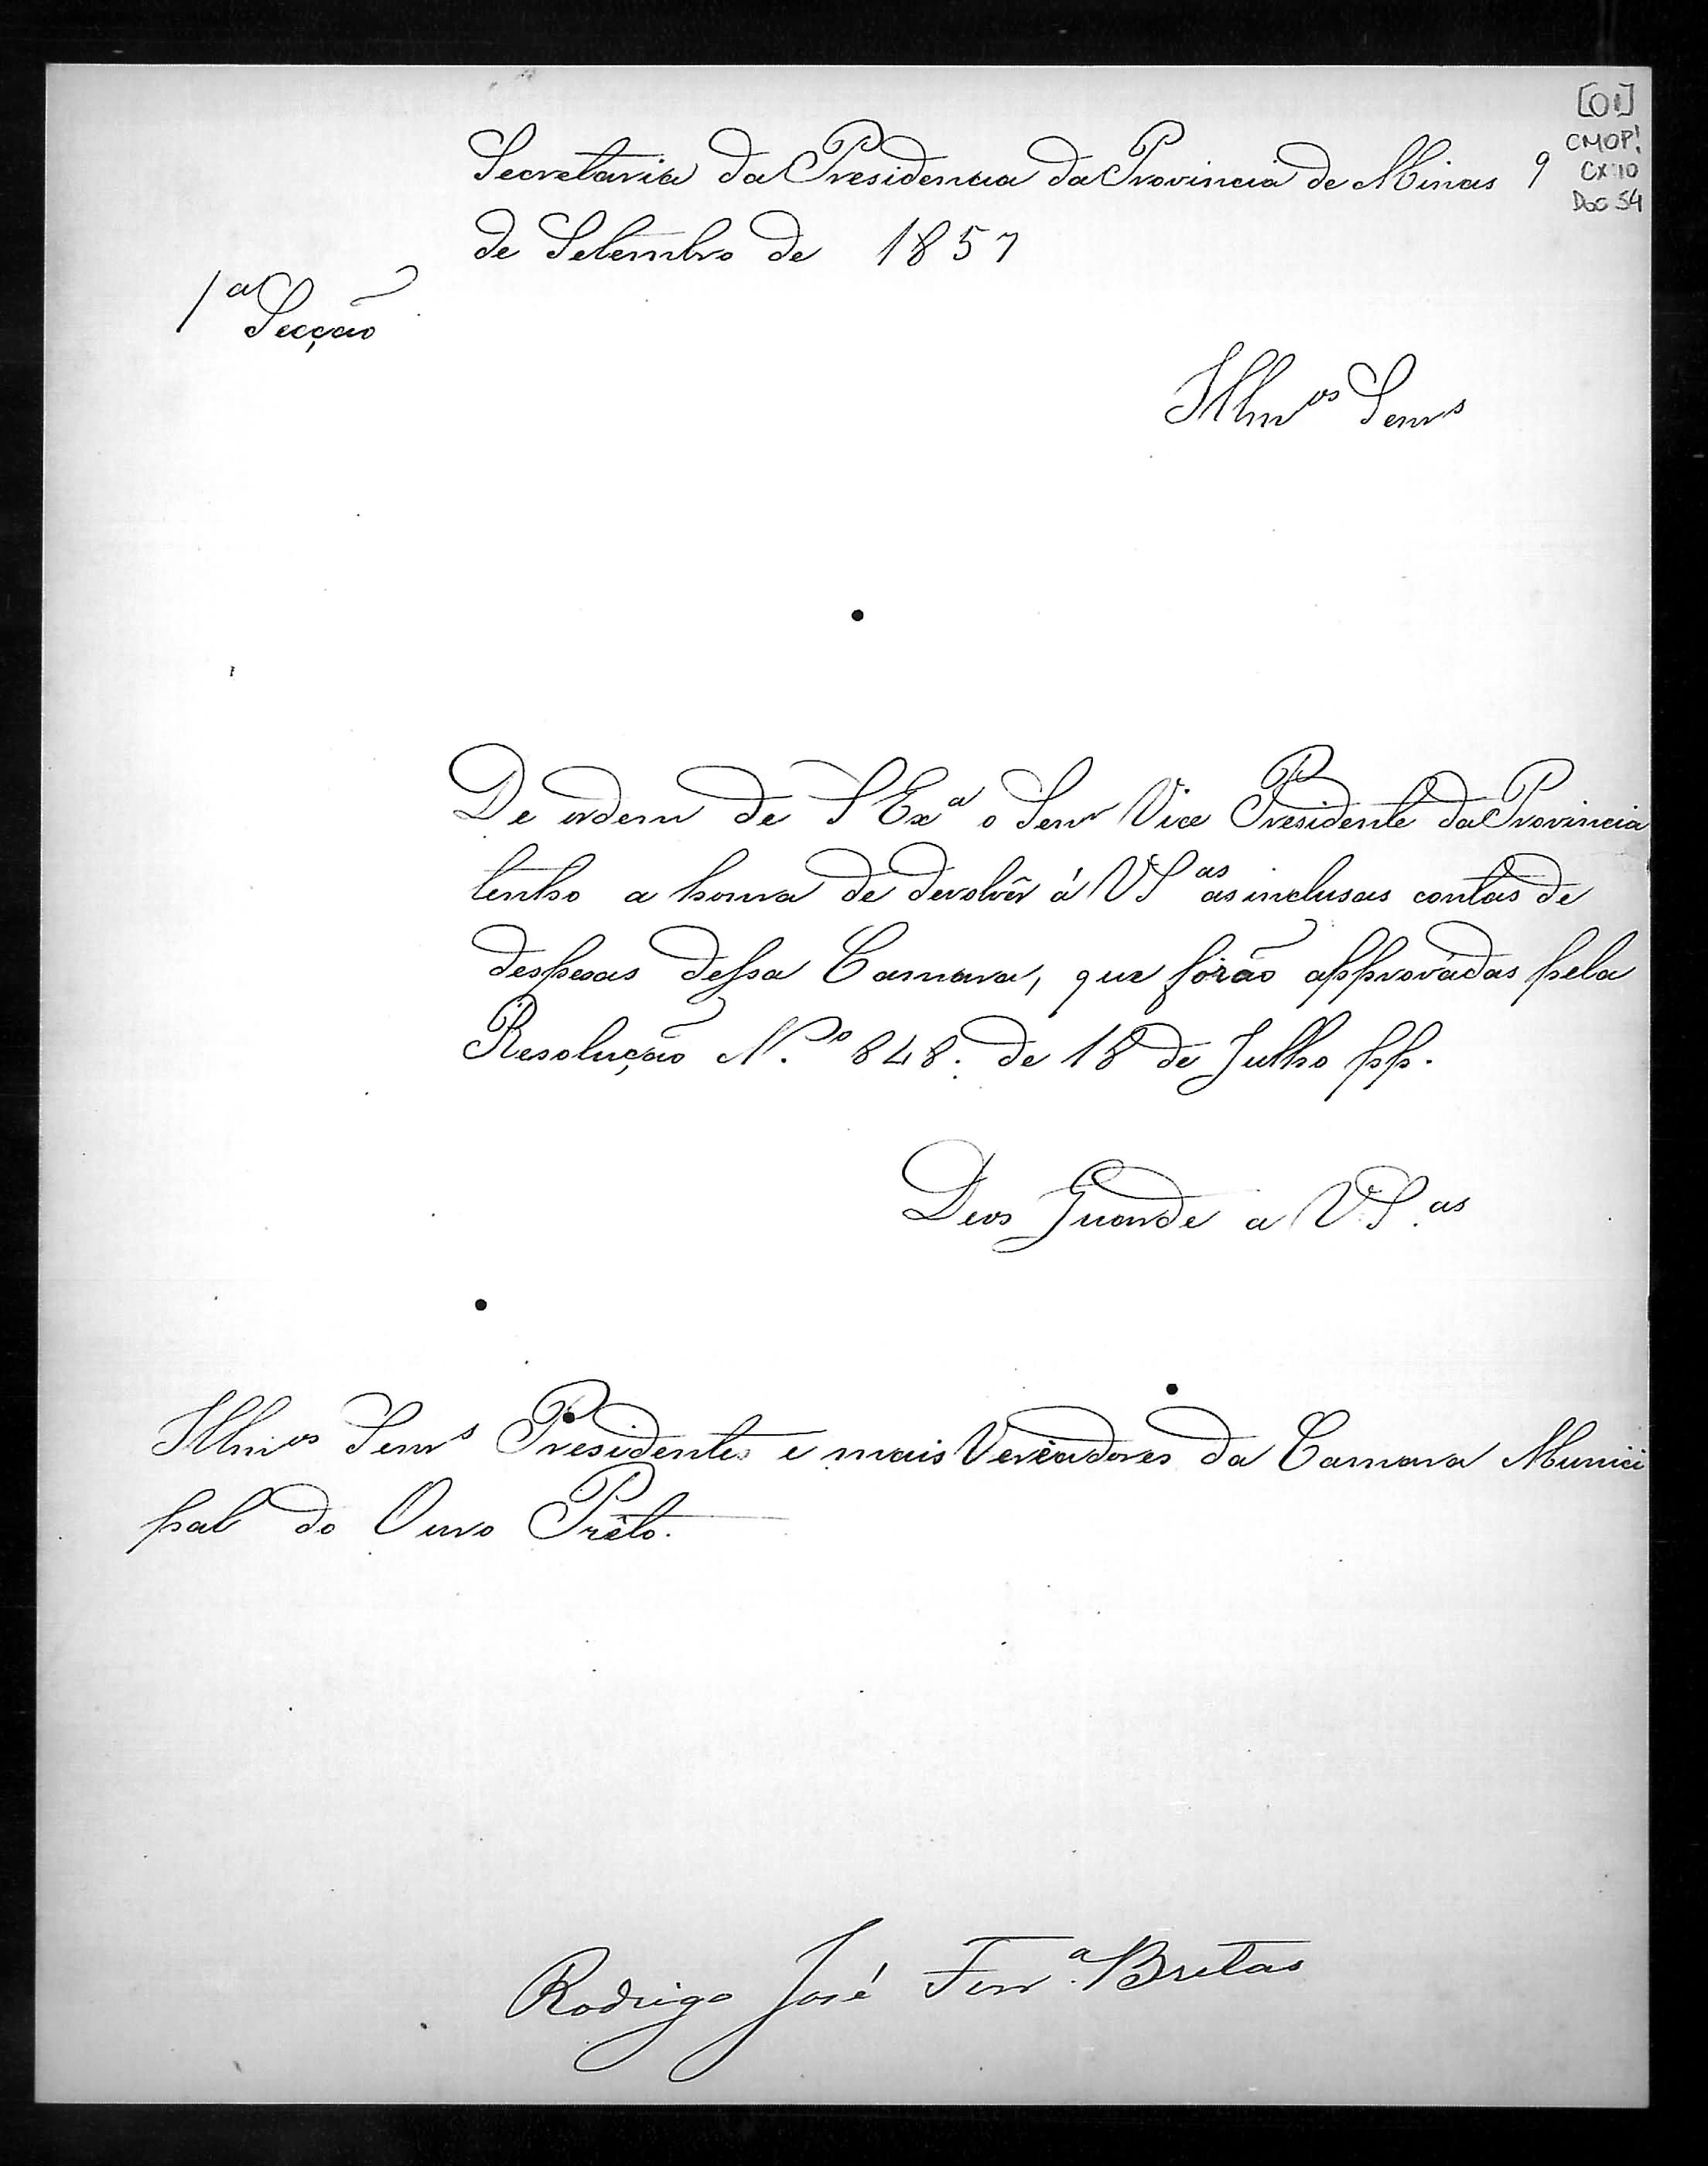 [01]
CMOP!
CX 10
DOC 54
Secretaria da Presidencia da Provincia de Minas 9
de Setembro de 1857
1ª Secção
Illmos Senrs
De ordem de S Exª o Senr Vice Presidente da Provincia
tenho a honra de devolvêr á VSas as inclusas contas de
despesas dessa Camara, que fórão approvádas pela
Resolução N.º 848. de 18 de Julho pp.
Deos Guarde a V.S.as
Illmos Senrs Presidente e mais Veréadores da Camara Munici
pal do Ouro Prêto.
Rodrigo José Ferrª. Bretas